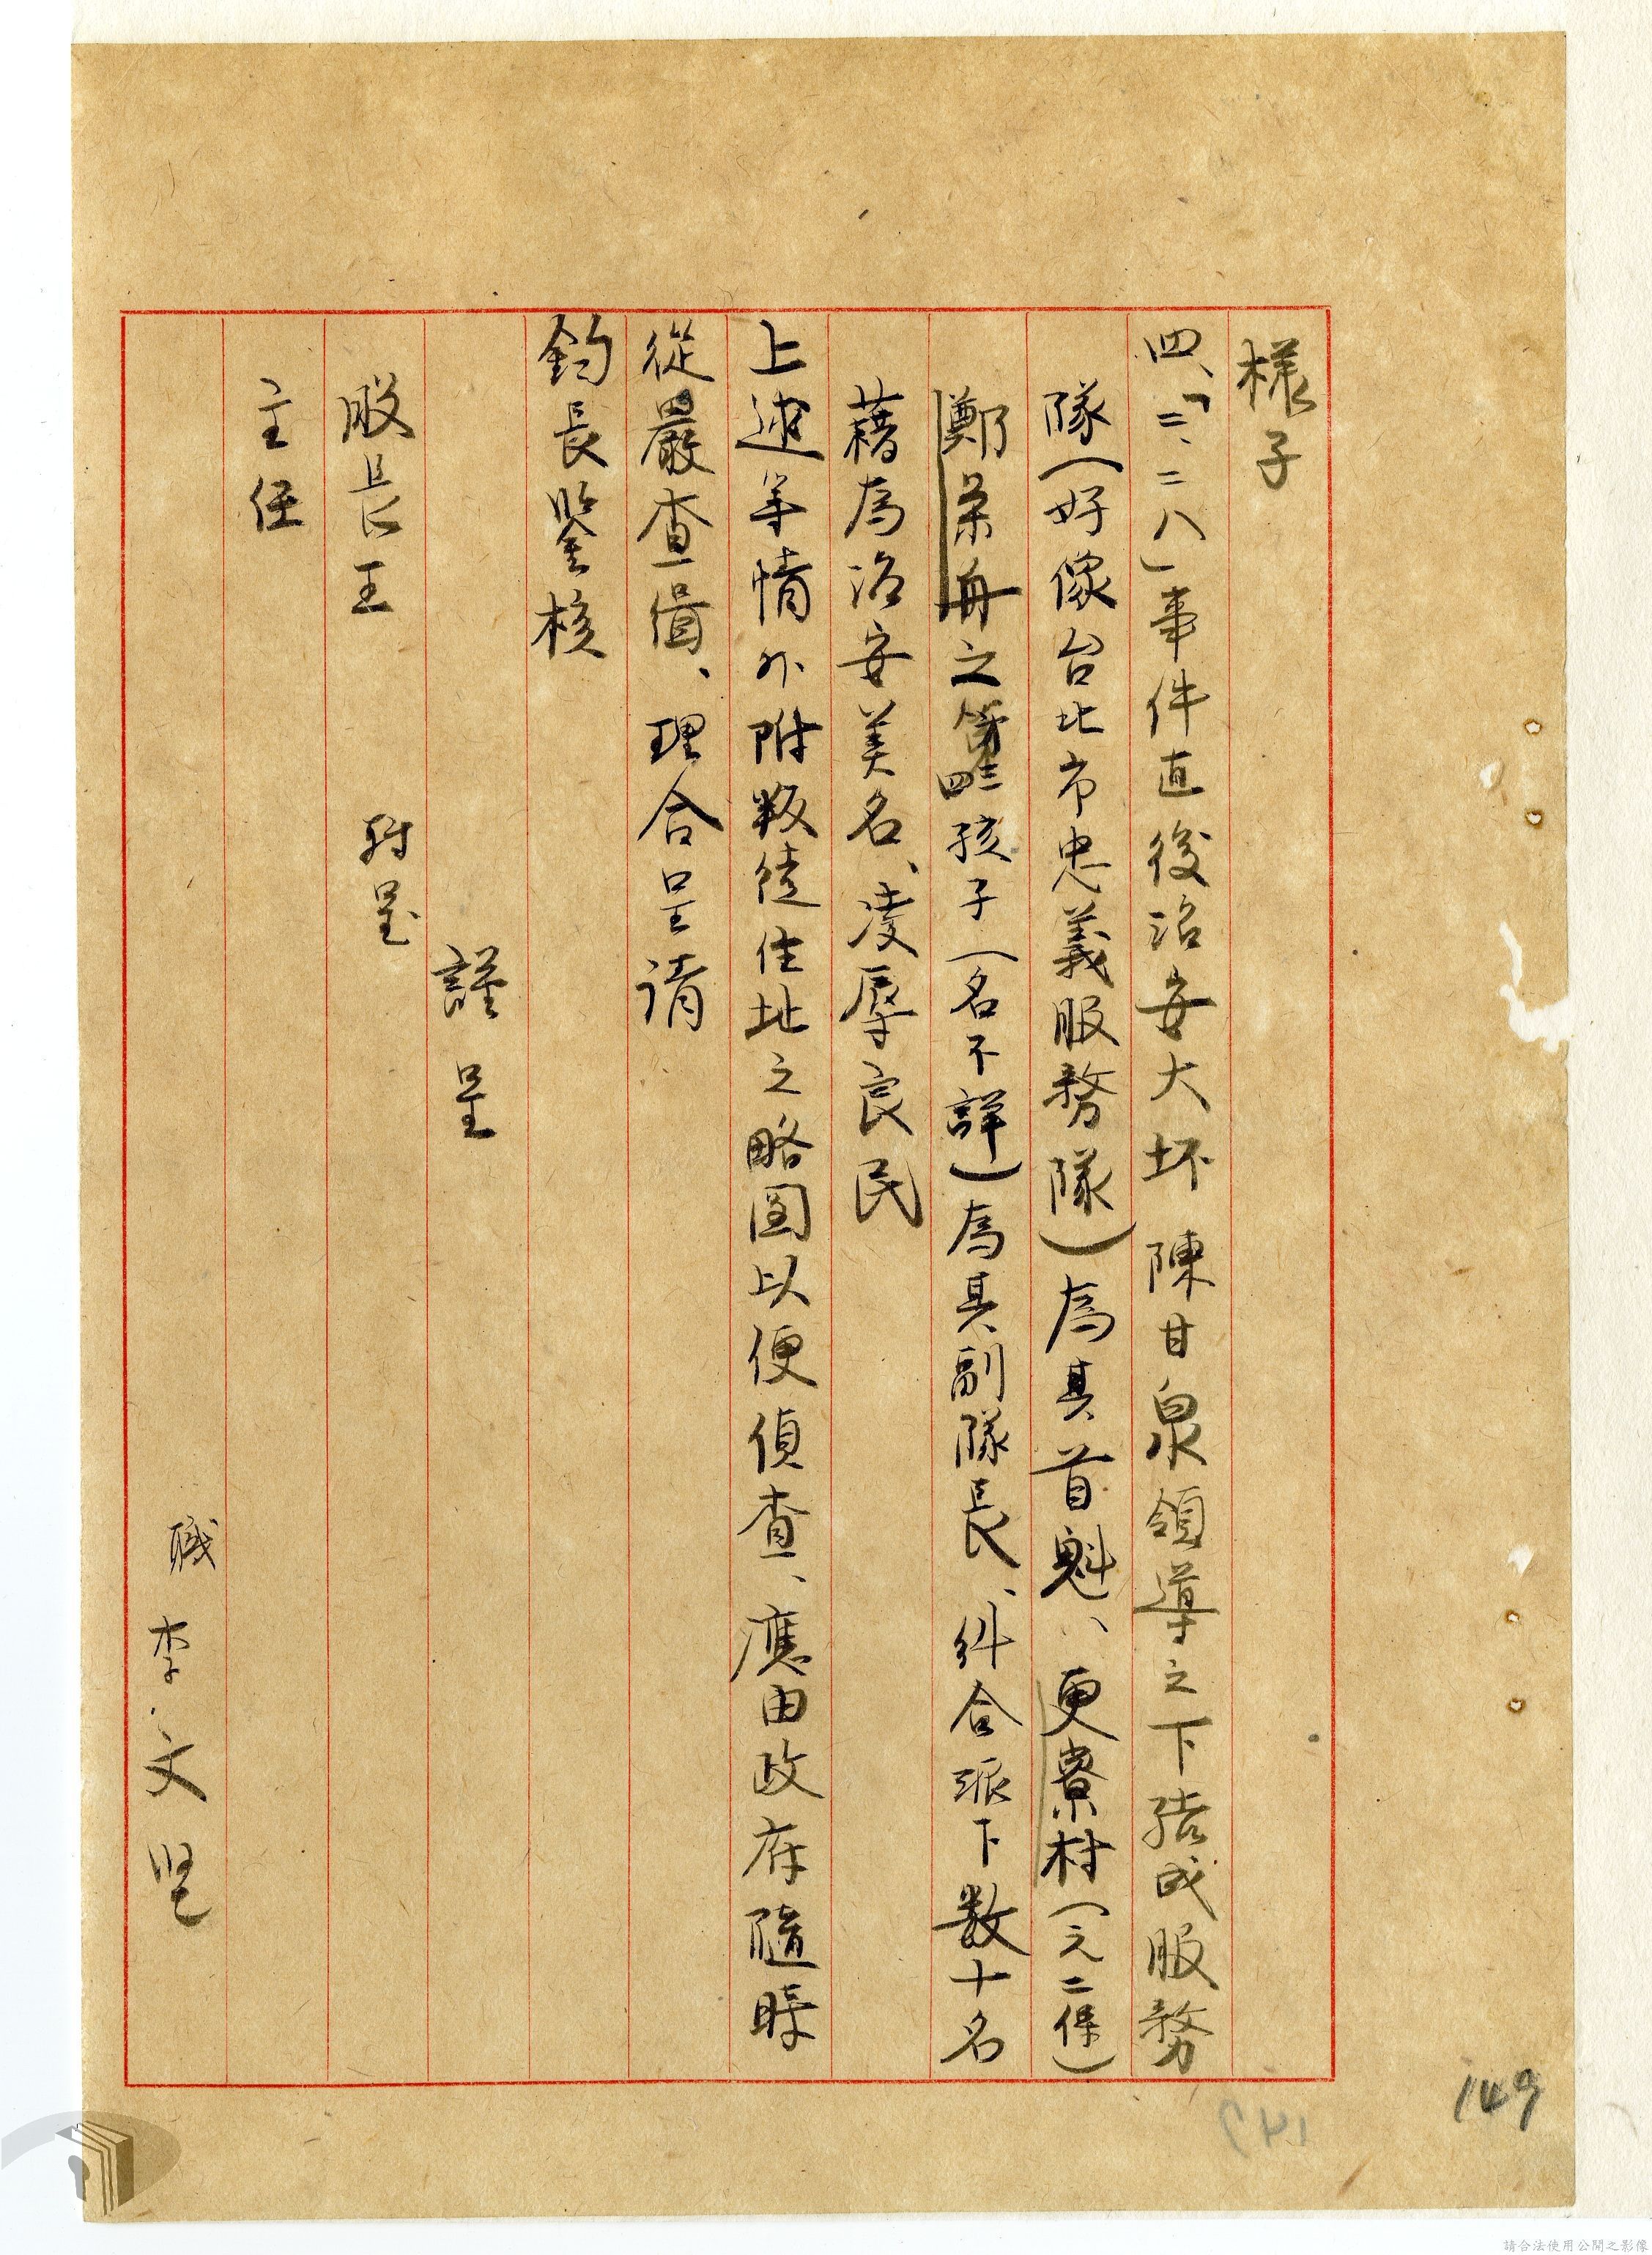 樣子
四、「二、二八」事件直後治安大坏 陳甘泉領導之下結成服務
隊(好像台北市忠義服務隊)為其首魁、更寮村(元二保)
鄭荣舟之第四三孩子(名不詳)為其副隊長、糾合派下数十名
藉為治安美名、凌辱良民
上述等情外附叛徒住址之略圖以便偵查、應由政府隨時
從嚴查緝、理合呈請
鈞長鑒核
謹呈
股長王 轉呈
主任
職 李文
149
請合法使用公開之影像